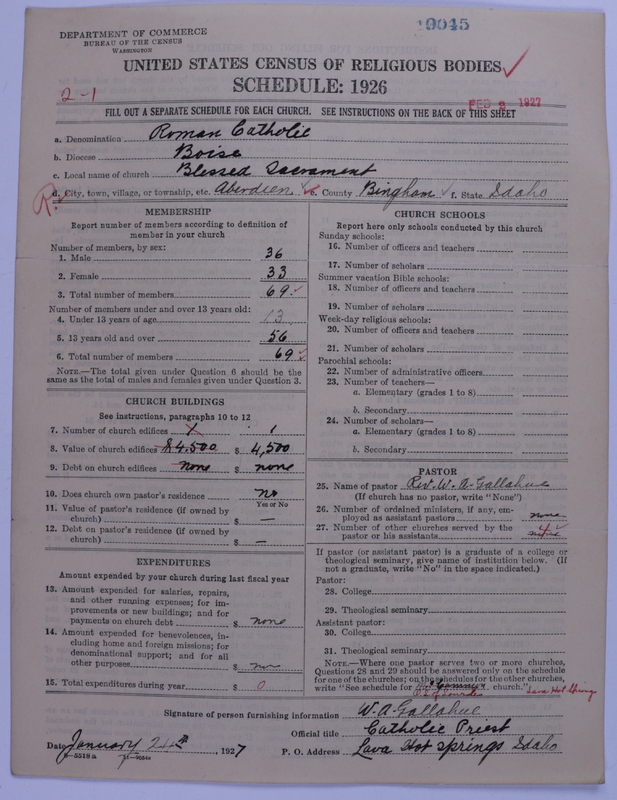 19045
DEPARTMENT OF COMMERCE
BUREAU OF THE CENSUS
WASHINGTON
UNITED STATES CENSUS OF RELIGIOUS BODIES
SCHEDULE: 1926
2-1
FEB 2 1927
FILL OUT A SEPARATE SCHEDULE FOR EACH CHURCH. SEE INSTRUCTIONS ON THE BACK OF THIS SHEET
a. Denomination Roman Catholic
b. Diocese Boise
c. Local name of church Blessed Sacrament
d. City, town, village, or township, etc. Aberdeen e. County Bingham f. State Idaho
R
MEMBERSHIP
Report number of members according to definition of
member in your church
Number of members, by sex:
1. Male 36
2. Female 33
3. Total number of members 69
Number of members under and over 13 years old:
4. Under 13 years of age 13
5. 13 years old and over 56
6. Total number of members 69
NOTE.—The total given under Question 6 should be the
same as the total of males and females given under Question 3.
CHURCH BUILDINGS
See instructions, paragraphs 10 to 12
7. Number of church edifices 1 1
8. Value of church edifices $4,500 $ 4,500
9. Debt on church edifices none $ none
10. Does church own pastor's residence no
Yes or No
11. Value of pastor's residence (if owned by
church) $ —
12. Debt on pastor's residence (if owned by
church) $ —
EXPENDITURES
Amount expended by your church during last fiscal year
13. Amount expended for salaries, repairs,
and other running expenses; for im-
provements or new buildings; and for
payments on church debt $ none
14. Amount expended for benevolences, in-
cluding home and foreign missions; for
denominational support; and for all
other purposes $
15. Total expenditures during year $ 0
CHURCH SCHOOLS
Report here only schools conducted by this church
Sunday schools:
16. Number of officers and teachers
17. Number of scholars
Summer vacation Bible schools:
18. Number of officers and teachers
19. Number of scholars
Week-day religious schools:
20. Number of officers and teachers
21. Number of scholars
Parochial schools:
22. Number of administrative officers
23. Number of teachers—
a. Elementary (grades 1 to 8)
b. Secondary
24. Number of scholars—
a. Elementary (grades 1 to 8)
b. Secondary
PASTOR
25. Name of pastor Rev. W. A. Gallahue
(If church has no pastor, write "None")
26. Number of ordained ministers, if any, em-
ployed as assistant pastors none
27. Number of other churches served by the 4
pastor or his assistants
If pastor (or assistant pastor) is a graduate of a college or
theological seminary, give name of institution below. (If
not a graduate, write "No" in the space indicated.)
Pastor:
28. College
29. Theological seminary
Assistant pastor:
30. College
31. Theological seminary
NOTE.—Where one pastor serves two or more churches,
Questions 28 and 29 should be answered only on the schedule
for one of the churches; on the schedules for the other churches,
write "See schedule for church." Lava Hot Springs
Signature of person furnishing information W. A. Gallahue
Official title Catholic Priest
Date January 24th, 1927 P. O. Address Lava Hot Springs Idaho
8—5518a